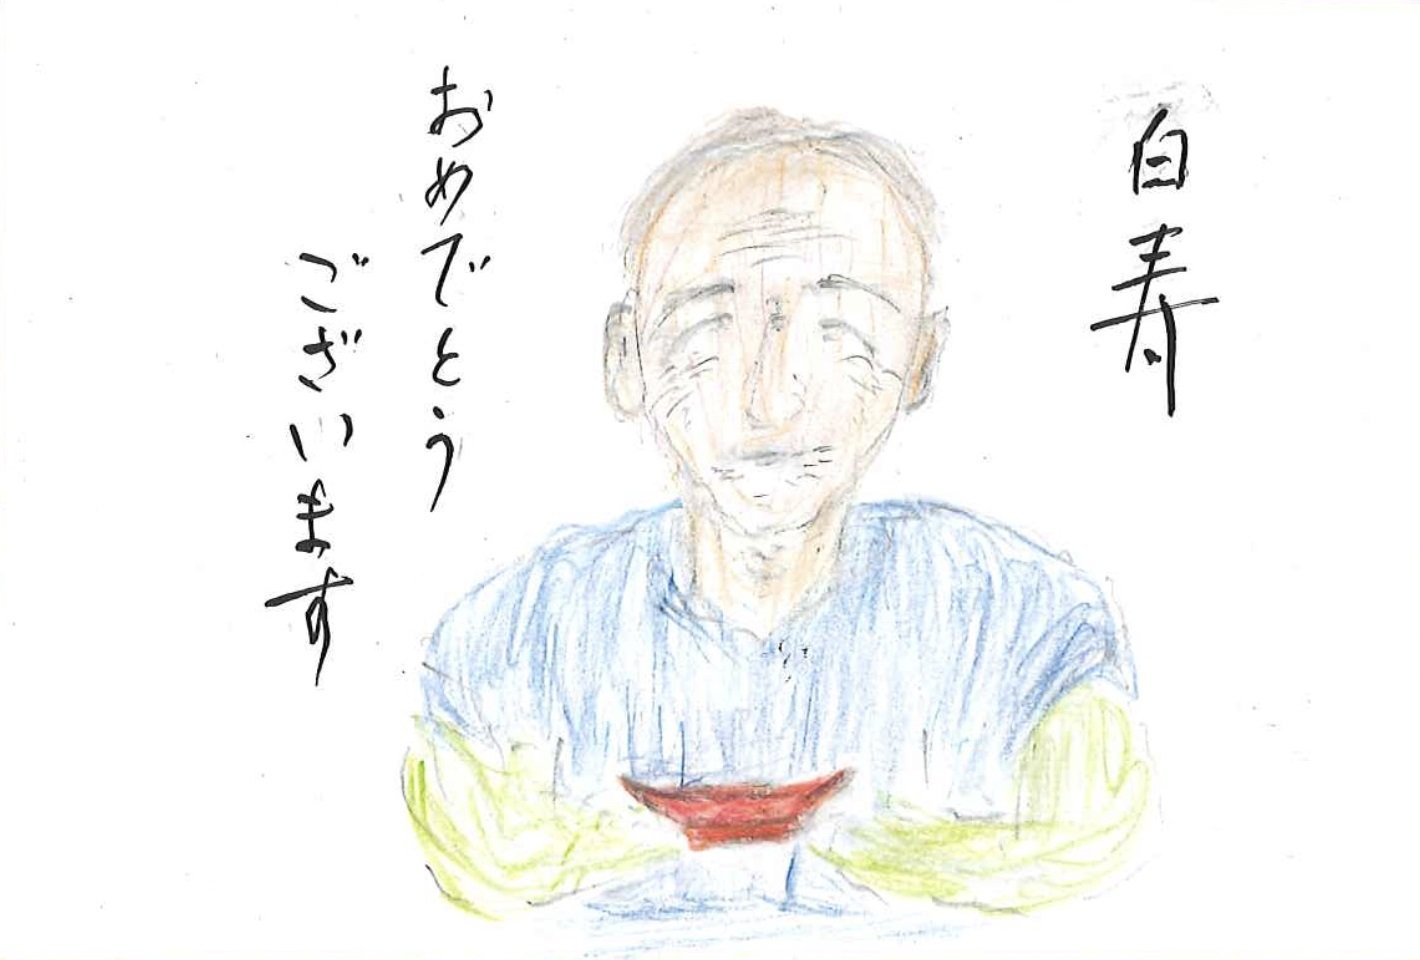 白寿
おめでとう
ございます